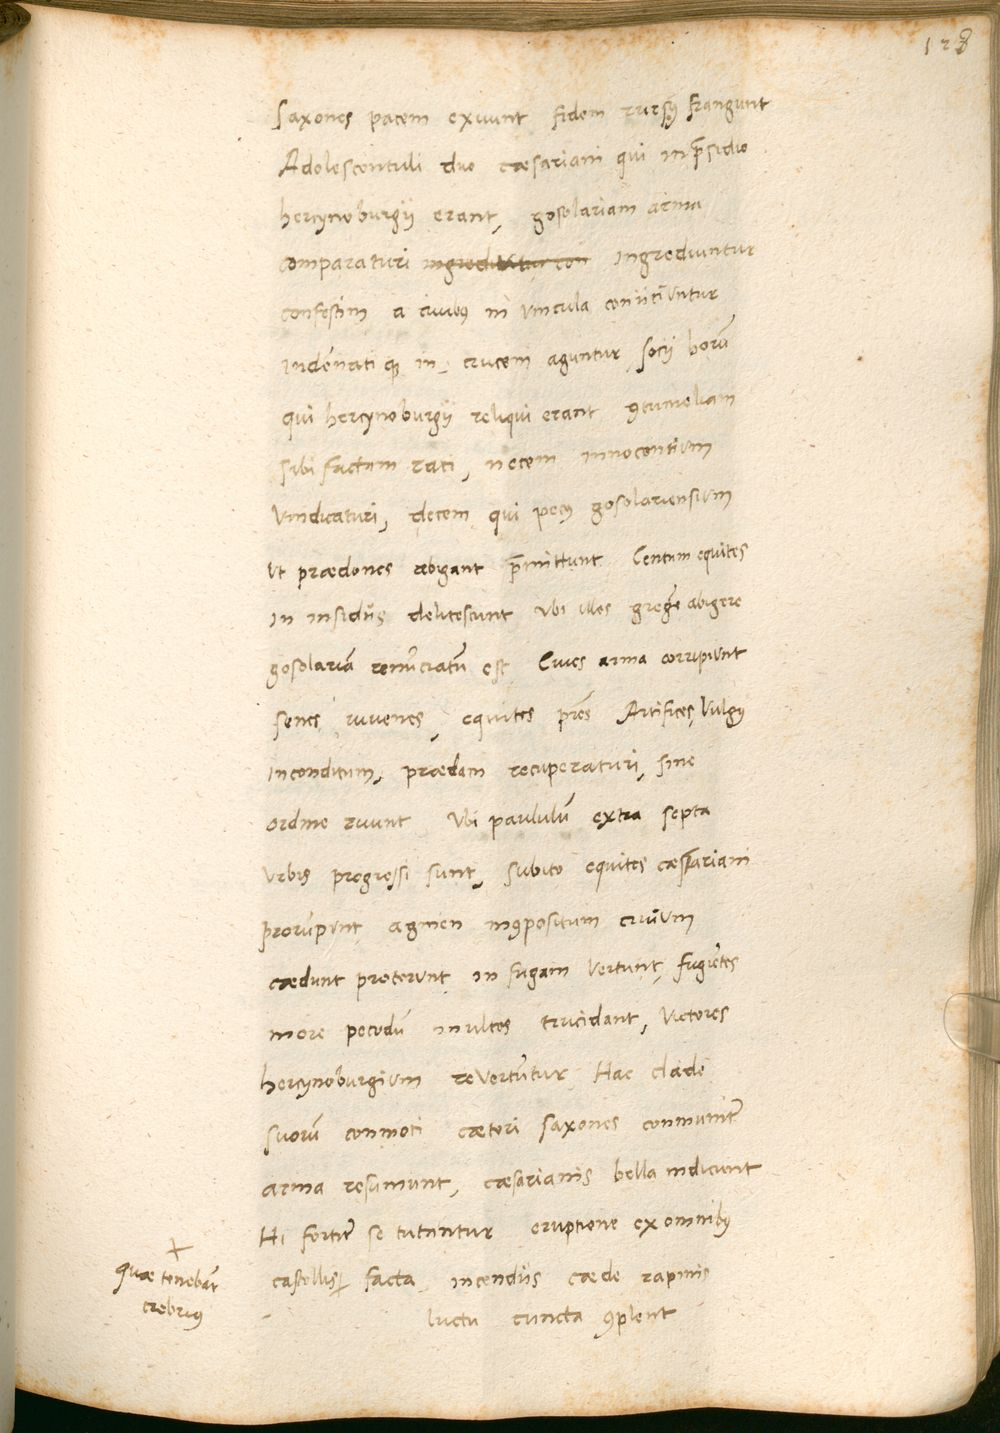 128
Saxones pacem exuunt fidem rursꝰ frangunt
Adolescentuli duo cæsariani qui in p̄sidio
hercynoburgii erant, gosolariam arma
comparaturi ingrediuntur con ingrediuntur
confestim a ciuibꝰ in vincula coniiciuntur
indēnatiqꝫ in crucem aguntur, socii horū
qui hercynoburgii reliqui erant ꝯtumeliam
sibi factam rati, necem innocentium
vindicaturi, decem qui pecꝰ gosolariensium
Vt prædones abigant p̄mittunt Centum equites
in insidiis delitescunt Vbi illos gregē abigere
gosolariā renūciatū est Ciues arma corripiunt
senes, iuuenes, equites p̄res Artifices, Vulgꝰ
inconditum, prædam recuperaturi, sine
ordine ruunt Vbi paululū extra septa
vrbis progressi sunt, subito equites cæsariani
prorūpunt agmen inꝯpositum ciuium
cædunt proterunt in fugam vertunt, fugiētes
more pecudū multos trucidant, Victores
hercynoburgium revertūtur Hac clade
suorū conmoti cæteri saxones conmunit̄
arma resumunt, cæsarianis bella indicunt
Hi fortit̄ se tutantur eruptione ex omnibꝰ
castellis facta incendiis cæde rapinis
luctu cuncta ꝯplent
quæ tenebāt
crebriꝰ